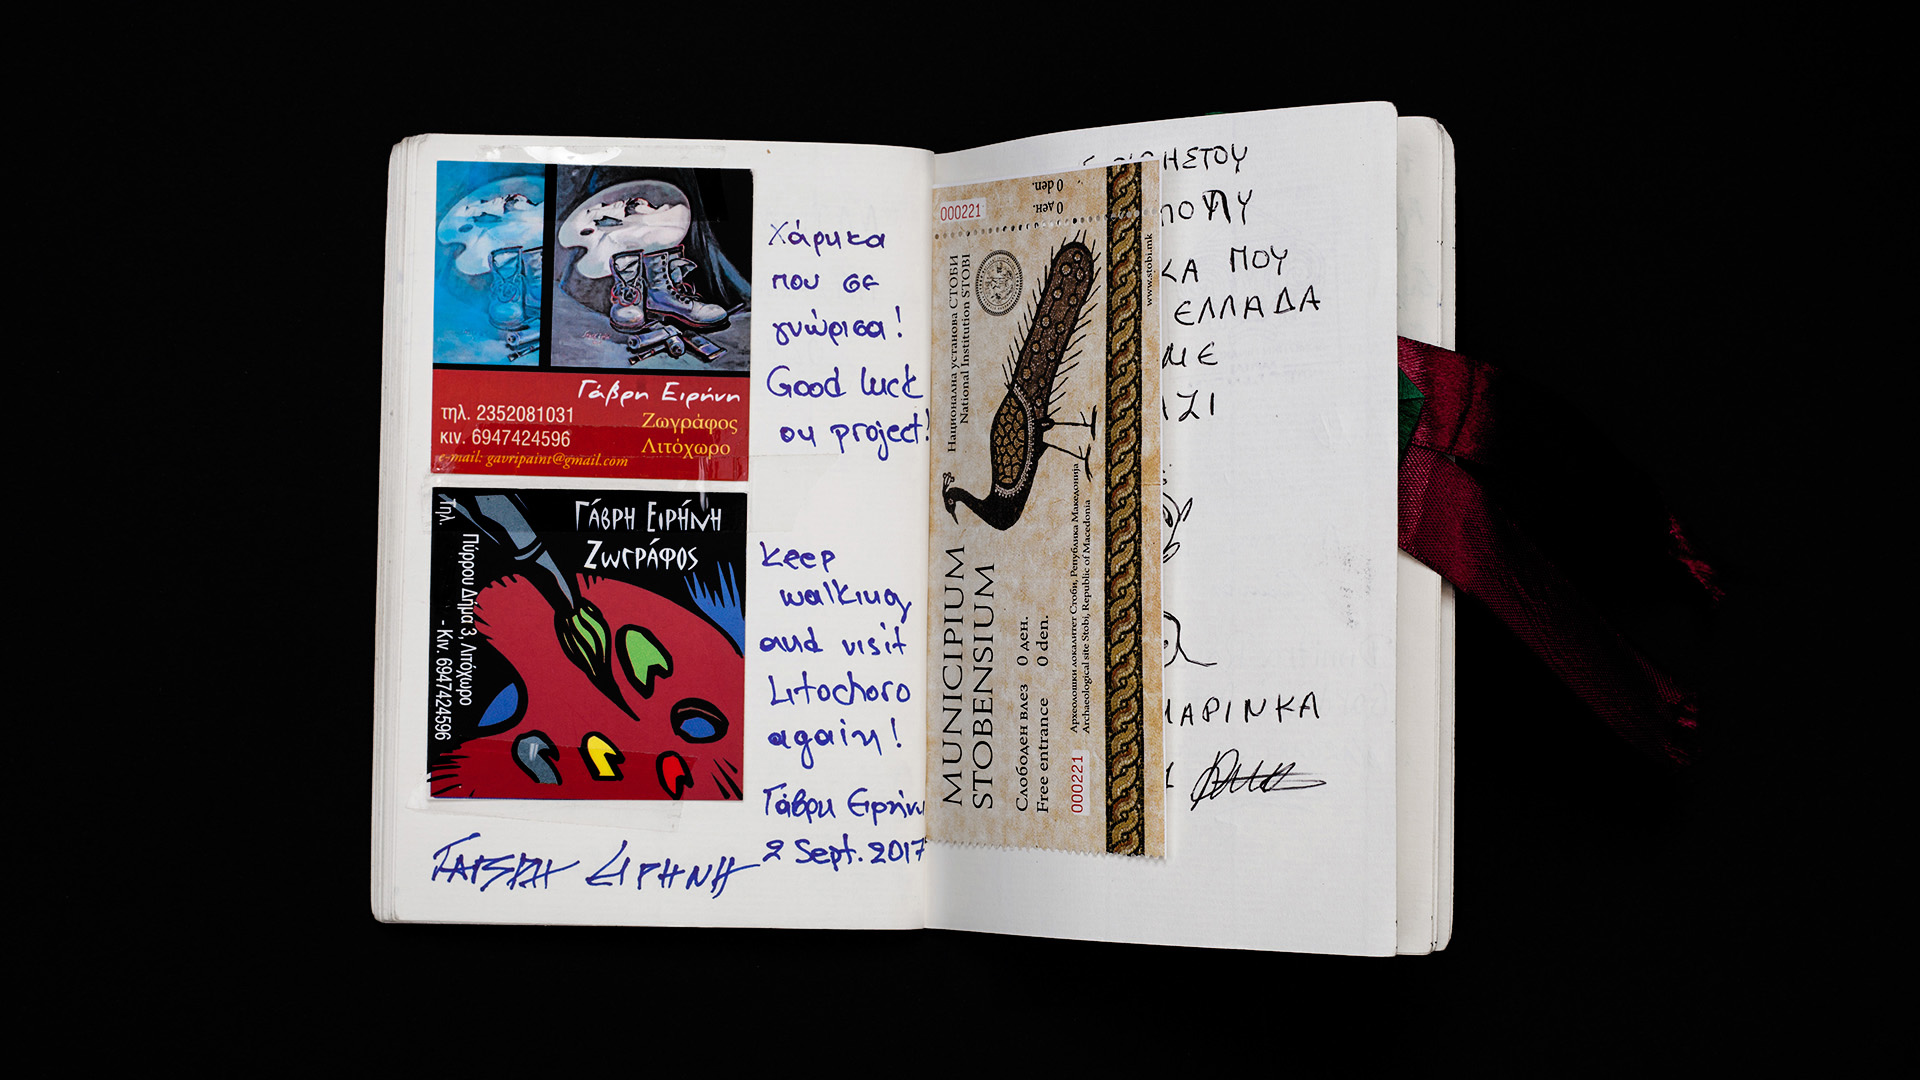 Γάβρη Ειρήνη
τηλ. 2352081031
κιν. 6947424596
Ζωγράφος
Λιτόχωρο
e-mail: gavripaint@gmail.com
ΓΑΒΡΗ ΕΙΡΗΝΗ
ΖωΓΡΑΦΟΣ
Πύρρου Δήμα 3, Λιτόχωρο
Τηλ. - Κιν. 6947424596
Χάρηκα
που σε
γνώρισα!
Good luck
on project!
Keep
walking
and visit
Litochoro
again!
Γάβρη Ειρήνη
2 Sept. 2017
ΓΑΒΡΗ ΕΙΡΗΝΗ
000221
0 ден.
0 den.
Национална установа СТОБИ
National Institution STOBI
www.stobi.mk
MUNICIPIUM
STOBENSIUM
Слободен влез 0 ден.
Free entrance 0 den.
Археолошки локалитет Стоби, Република Македонија
Archaeological site Stobi, Republic of Macedonia
000221
ΠΟΥ
ΕΛΛΑΔΑ
ΜΕ
ΜΑΡΙΝΚΑ